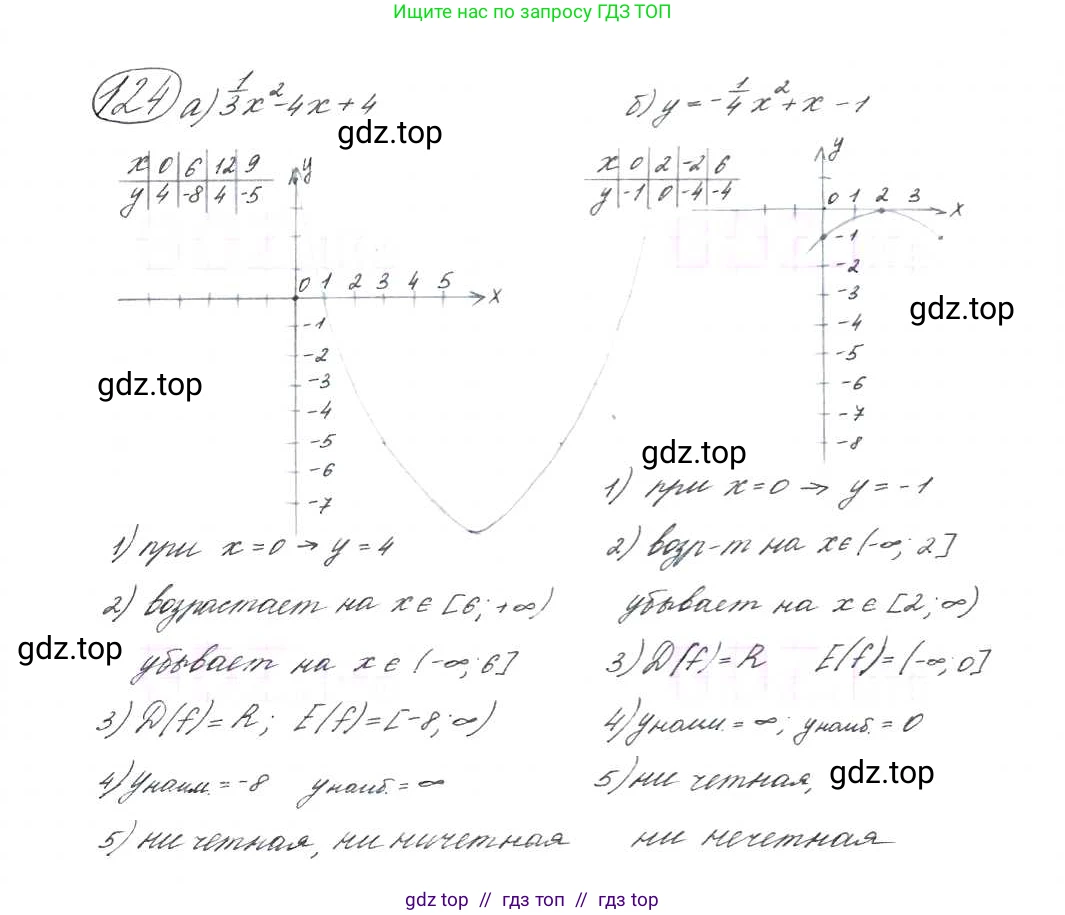 Ищите нас по запросу ГДЗ ТОП
124 а) 1/3 x² - 4x + 4
gdz.top
x | 0 | 6 | 12 | 9
y | 4 | -8 | 4 | -5
y
0 1 2 3 4 5 x
-1
-2
-3
-4
-5
-6
-7
gdz.top
1) при x = 0 → y = 4
2) возрастает на x ∈ [6; +∞)
gdz.top
убывает на x ∈ (-∞; 6]
3) D(f) = R; E(f) = [-8; ∞)
4) yнаим. = -8 yнаиб. = ∞
5) ни четная, ни ничетная
б) y = -1/4 x² + x - 1
x | 0 | 2 | -2 | 6
y | -1 | 0 | -4 | -4
y
0 1 2 3 x
-1
-2
-3
-4
-5
-6
-7
-8
gdz.top
gdz.top
1) при x = 0 → y = -1
2) возр-т на x ∈ (-∞; 2]
убывает на x ∈ [2; ∞)
3) D(f) = R E(f) = (-∞; 0]
4) yнаим. = ∞; yнаиб. = 0
5) ни четная,
gdz.top
ни нечетная
gdz.top // гдз топ // gdz.top // гдз топ